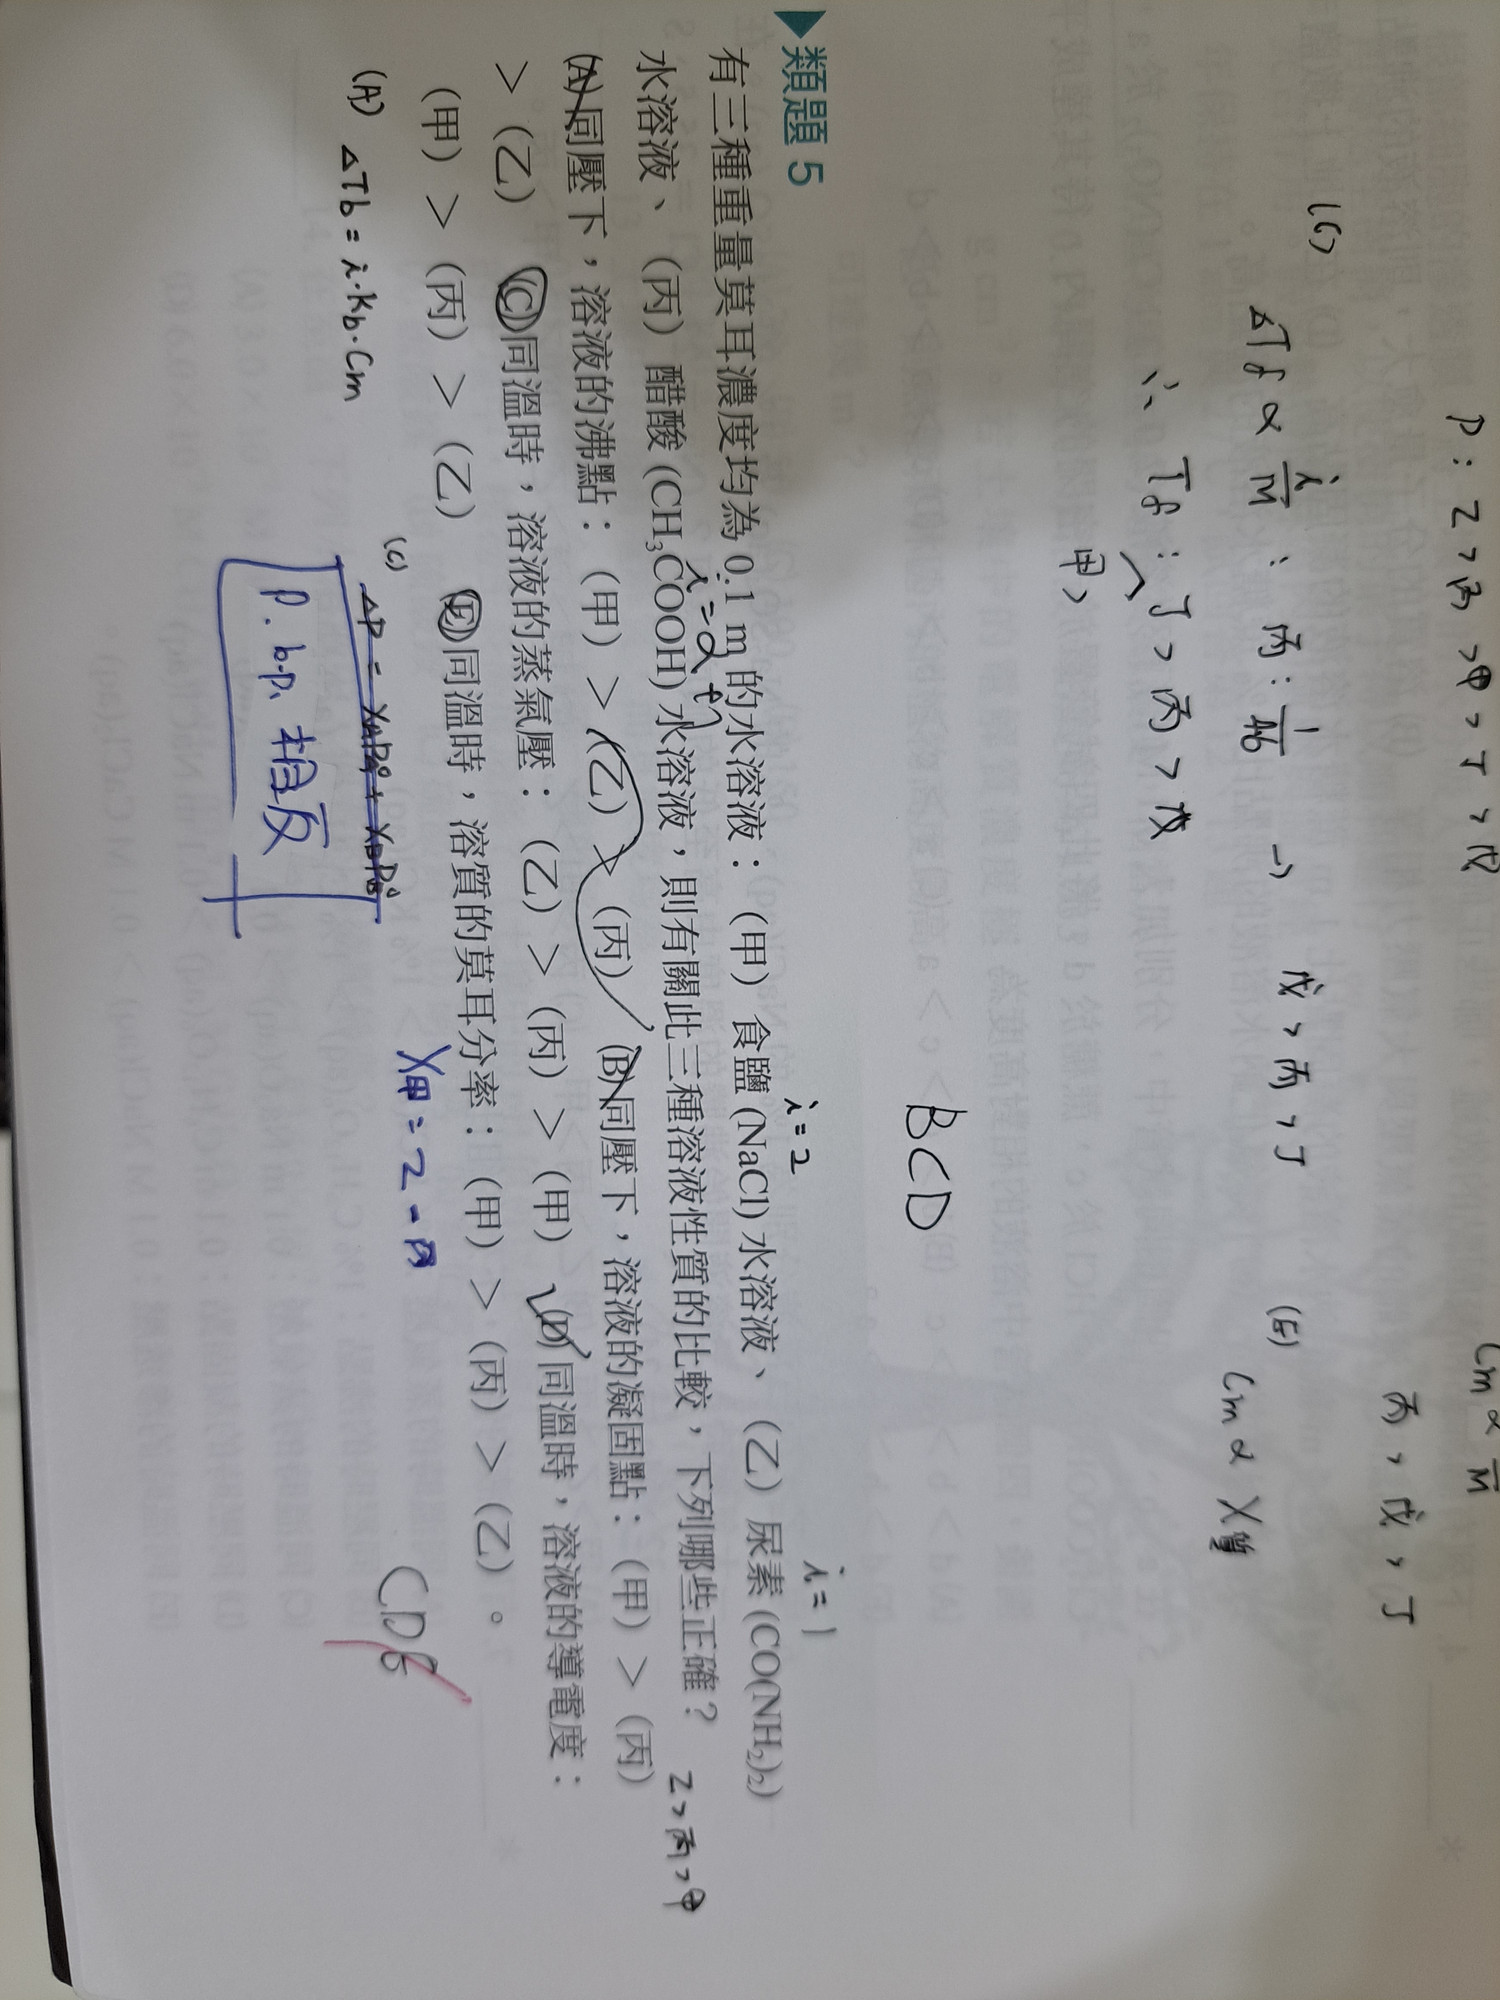 P：乙 > 丙 > 甲 > 丁 > 戊
(C)
ΔTf ∝ i/M : 丙：1/46 → 戊 > 丙 > 丁
∴ Tf：丁 > 丙 > 戊
甲 >
Cm ∝ 1/M
丙 > 戊 > 丁
(E)
Cm ∝ X質
BCD
▶類題 5
i = 2
i = 1
有三種重量莫耳濃度均為 0.1 m 的水溶液：（甲）食鹽 (NaCl) 水溶液、（乙）尿素 (CO(NH₂)₂)
水溶液、（丙）醋酸 (CH₃COOH) 水溶液，則有關此三種溶液性質的比較，下列哪些正確？
乙 > 丙 > 甲
(A)同壓下，溶液的沸點：（甲）>（乙）>（丙） (B)同壓下，溶液的凝固點：（甲）>（丙）
>（乙） (C)同溫時，溶液的蒸氣壓：（乙）>（丙）>（甲） (D)同溫時，溶液的導電度：
（甲）>（丙）>（乙） (E)同溫時，溶質的莫耳分率：（甲）>（丙）>（乙）。
X甲 = 乙 = 丙
CDE
(A) ΔTb = i · Kb · Cm
(C)
P. b.p. 相反